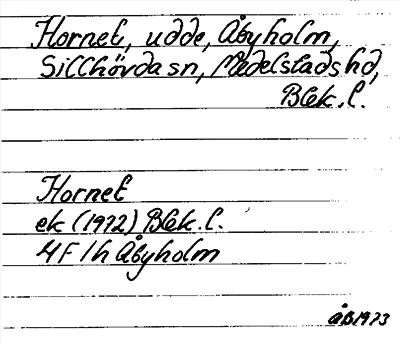 Hornet, udde, Åbyholm,
Sillhövda sn, Medelstads hd,
Blek. l.
Hornet
ek (1972) Blek. l.
4F1h Åbyholm
ÅB1973